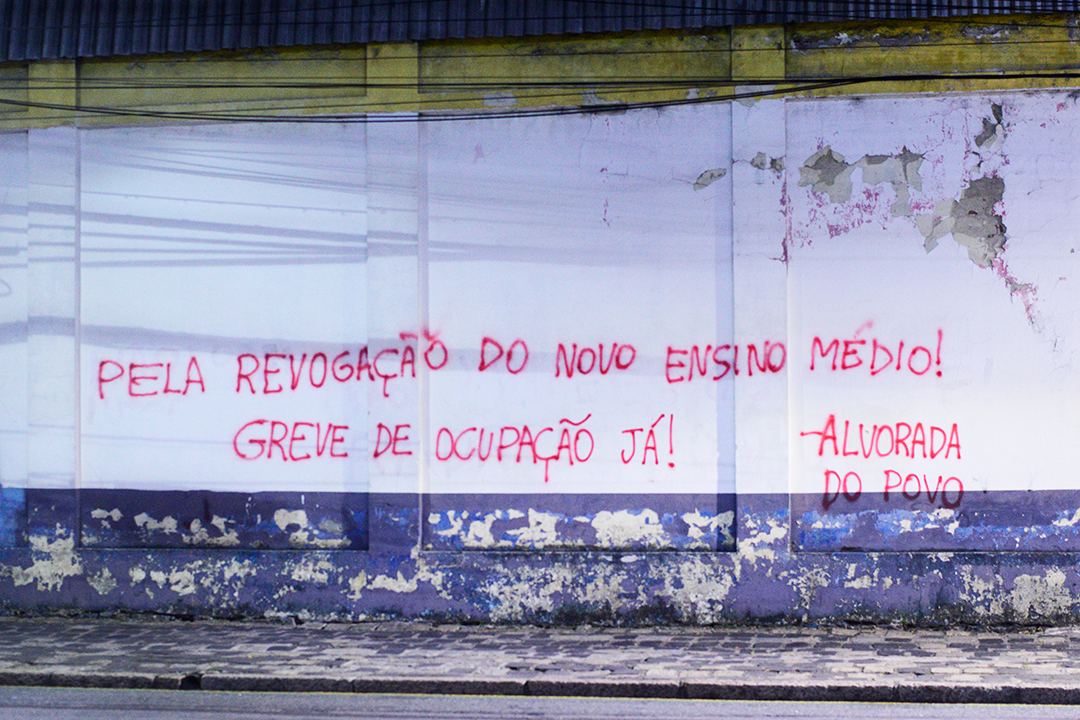 PELA REVOGAÇÃO DO NOVO ENSINO MÉDIO!
GREVE DE OCUPAÇÃO JÁ!
-ALVORADA
DO POVO